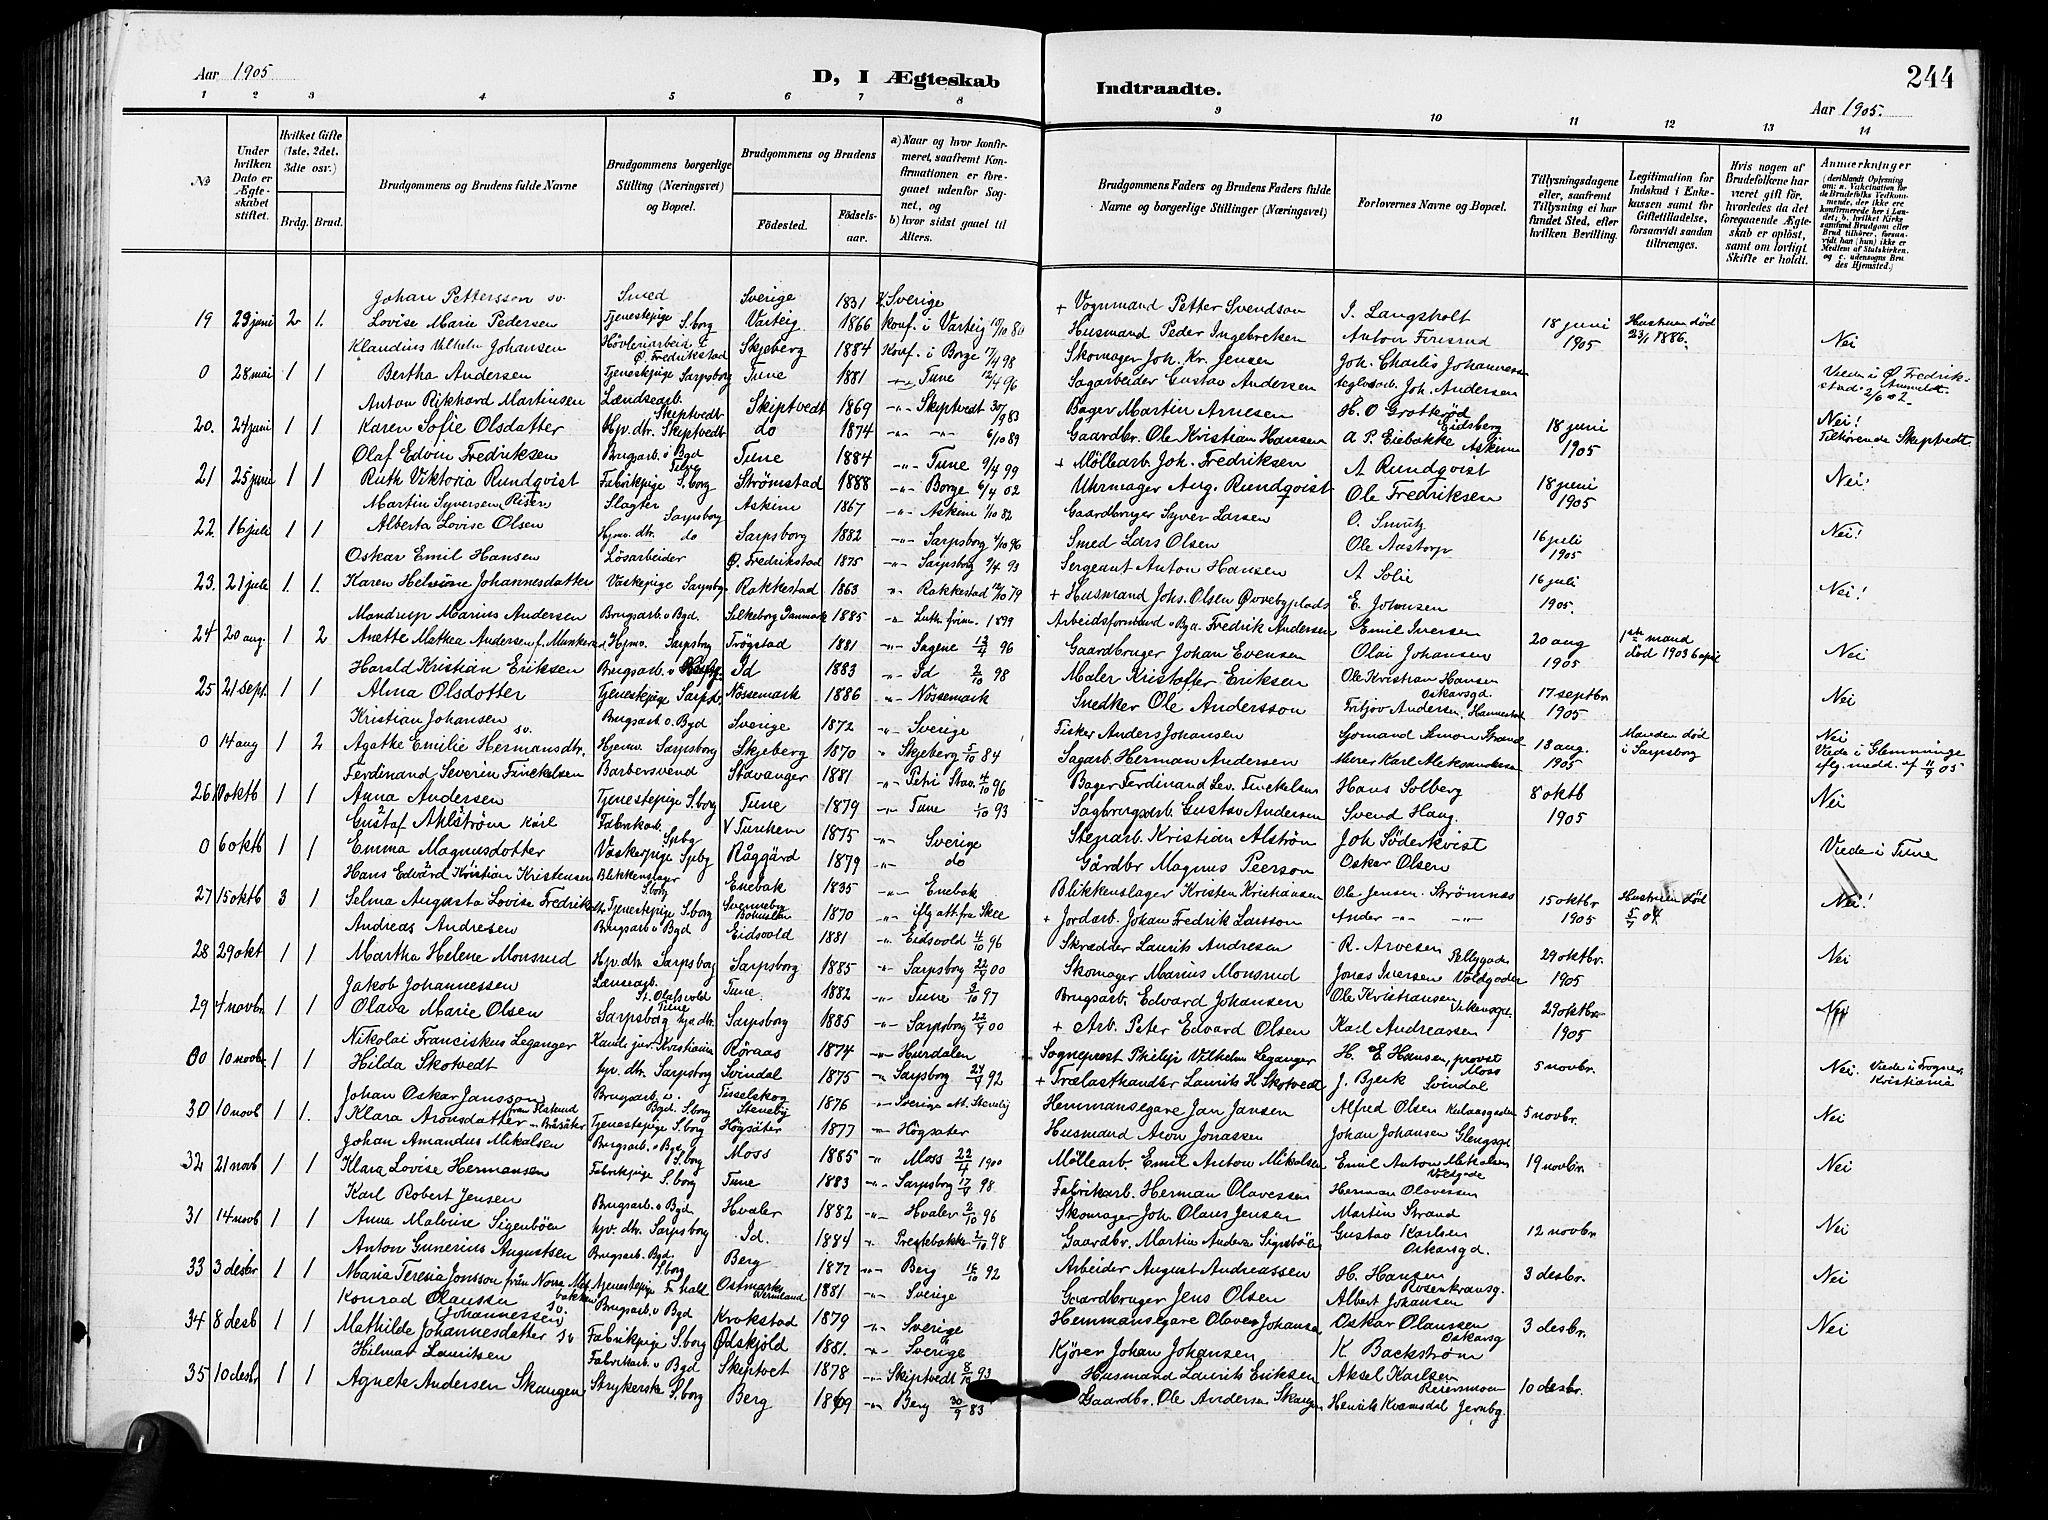 Aar 1905
D, I Ægteskab
Indtraadte.
244
Aar 1905.
1 2 3 4 5 6 7 8 9 10 11 12 13 14
№
Under hvilken Dato er Ægteskabet stiftet.
Hvilket Gifte (1ste, 2det, 3die osv.)
Brdg. Brud.
Brudgommens og Brudens fulde Navne
Brudgommens borgerlige Stilling (Næringsvei) og Bopæl.
Brudgommens og Brudens
Fødested.
Fødselsaar.
a) Naar og hvor konfirmeret, saafremt Konfirmationen er foregaaet udenfor Sognet, og
b) hvor sidst gaaet til Alters.
Brudgommens Faders og Brudens Faders fulde Navne og borgerlige Stillinger (Næringsvei)
Forlovernes Navne og Bopæl.
Tillysningsdagene eller, saafremt Tillysning ei har fundet Sted, efter hvilken Bevilling.
Legitimation for Indskud i Enkekassen samt for Giftetilladelse, forsaavidt saadan tiltrænges.
Hvis nogen af Brudefolkene har været gift før, hvorledes da det foregaaende Ægteskab er opløst, samt om lovligt Skifte er holdt.
Anmærkninger
Johan Pettersson sv. Smed Sverige 1831 Sverige + Vognmand Petter Svendson J. Langsholt
19 29 juni 2 1. Lovise Marie Pedersen Tjenestepige S.borg Varteig 1866 Konf. i Varteig 10/10 80 Husmand Peder Ingebretsen Anton 18 juni 1905 Hustruen død 23/1 1886. Nei
Klaudius Vilhelm Johansen Høvleriarbeid Ø. Fredrikstad Skjeberg 1884 Konf. i Borge 17/4 98 Skomager Joh. Kr. Jensen Joh. Charles Johannesen
0 28 mai 1 1 Bertha Andersen Tjenestepige Sarpsborg Tune 1881 -"- Tune 12/4 96 Sagarbeider Gustav Andersen Joh. Andersen Viede i Ø. Fredrikstad
Anton Rikhard Martinsen Lændsearb. Skiptvedt Skiptvedt 1869 -"- Skiptvedt 30/9 83 Bager Martin Arnesen H. O Grotterød Eidsberg
20. 24 juni 1 1 Karen Sofie Olsdatter Hp. dtr. Skiptvedt do 1874 -"- -"- 6/10 89 Gaardbr. Ole Kristian Hansen A P. Eiebakke Askim 18 juni 1905 Nei! Tilhørende Skiptvedt
Olaf Edvin Fredriksen Brugsarb. v Bgd Tune Tune 1884 -"- Tune 9/4 99 + Møllearb. Joh. Fredriksen A Rundqvist
21 25 juni 1 1 Ruth Viktoria Rundqvist Fabrikpige S.borg Strømstad 1888 -"- Borge 6/4 02 Uhrmager Aug. Rundqvist Ole Fredriksen 18 juni 1905 Nei!
Martin Syversen Risen Slagter Sarpsborg Askim 1867 -"- Askim 1/10 82 Gaardbruger Syver Larsen O.
22. 16 juli 1 1 Alberta Lovise Olsen Hjmv. dtr. do Sarpsborg 1882 -"- Sarpsborg 4/10 96 Smed Lars Olsen Ole Aastorp 16 juli 1905 Nei!
Oskar Emil Hansen Løsarbeider Ø. Fredrikstad 1875 -"- Sarpsborg 9/4 93 Sergeant Anton Hansen A Solie
23. 21 juli 1. 1. Karen Helvine Johannesdatter Vaskepige Sarpsborg Rakkestad 1863 " Rakkestad 12/10 79 + Husmand Johs. Olsen Øvrebyplads E. Johnsen 16 juli 1905. Nei!
Mandrup Marius Andersen Brugsarb. v Bgd. Silkeborg Danmark 1885 -"- Luth. frim. 1899 Arbeidsformand v Bgd. Fredrik Andersen Emil Iversen
24 20 aug. 1 2 Anette Mathea Andersen f. Munkerud Hjmv. Sarpsborg Trøgstad 1881 -"- Sagene 13/4 96 Gaardbruger Johan Evensen Olai Johansen 20 aug 1905 1ste mand død 1903 6 april Nei
Harald Kristian Eriksen Brugsarb. v Id 1883 -"- Id 2/10 98 Maler Kristoffer Eriksen Ole Kristian Hansen Oskarsgd.
25 21 sept. 1 1 Alma Olsdotter Tjenestepige Sarpsb. Nössemark 1886 -"- Nössemark Snedker Ole Andersson Fritjov Andersen, Hannestad 17 septbr 1905 Nei
Kristian Johansen sv. Brugsarb v. Bgd Sverige 1872 -"- Sverige Fisker Anders Johansen Sjømand Simon Strand
0 14 aug 1 2 Agathe Emilie Hermansdtr. Hjemv. Sarpsborg Skjeberg 1870 " Skjeberg 5/10 84 Sagarb. Herman Andersen Murer Karl Aleksandersen 13 aug. 1905 Manden død i Sarpsborg Nei Viede i Glemminge iflg. medd. af 11/9 05
Ferdinand Severin Finckelsen Barbersvend Stavanger 1881 -"- Petri Stav. 4/10 96 Bager Ferdinand Lev. Finckelsen Hans Solberg
26 10 oktb 1 1 Anna Andersen Tjenestepige S.borg Tune 1879 -"- Tune 1/10 93 Sagbrugsarb. Gustav Andersen Svend Haug. 8 oktb 1905 Nei
Gustaf Ahlström Karl Fabrikarb. Spbg 1875 -"- Sverige Stenarb. Kristian Alström Joh Söderkvist
0 6 oktb 1 1 Emma Magnusdotter Vaskepige Spbg Råggärd 1879 -"- do Gårdbr Magnus Peerson Oskar Olsen Viede i Tune
Hans Edvard Kristian Kristensen Blikkenslager S.borg Enebak 1835 -"- Enebak Blikkenslager Kristen Kristiansen Ole Jensen Strømnes
27 15 oktb 3 1 Selma Augusta Lovise Fredriksdtr Tjenestepige S.borg Svenneby Bohuslän 1870 -"- iflg att. fra Skee + Jordarb. Johan Fredrik Larsson Ander -"- -"- 15 oktbr 1905 Hustruen død 5/7 04 Nei!
Andreas Andresen Brugsarb v Bgd Eidsvold 1881 -"- Eidsvold 4/10 96 Skrædder Laurits Andresen R. Arvesen Pellygade
28 29 okt 1 1 Martha Helene Monsrud Hp. dtr. Sarpsborg Sarpsborg 1885 -"- Sarpsborg 22/4 00 Skomager Marius Monsrud Jonas Iversen Voldgaden 29 oktbr. 1905 Nei
Jakob Johannessen Lænsearb. St. Olafsvold Tune Tune. 1882 -"- Tune 3/10 97 Brugsarb. Edvard Johansen Ole Kristiansen
29 4 novbr. 1 1 Olava Marie Olsen Sarpsborg hjv dtr. Sarpsborg 1885 -"- Sarpsborg 22/4 00 + Arb. Peter Edvard Olsen Karl Andreassen 29 oktbr 1905 Nei
Nikolai Franciskus Leganger Kand. jur Kristiania Røraas 1874 -"- Hurdalen Sogneprest Philip Vilhelm Leganger H. E Hansen, provst Moss
00 10 novbr. 1 1 Hilda Skotvedt hjv. dtr. Sarpsborg Svindal 1875 -"- Sarpsborg 24/4 92 + Trælasthandler Laurits H. Skotvedt J. Bjerk Svindal 5 novbr. Nei. Viede i Frogner, Kristiania
Johan Oskar Jansson Brugsarb. v. Bgd. S.borg Tisselskog 1876 -"- Sverige att. Steneby Hemmansegare Jan Jansen Alfred Olsen
30 10 novb 1 1. Klara Aronsdatter Tjenestepige S.borg Högsäter 1877 -"- Högsäter Husmand Aron Jonassen Johan Johansen Glengsgd 5 novbr. Nei
Johan Amandus Mikalsen Brugsarb. v Bgd S.borg Moss 1885 " Moss 22/4 1900 Møllearb. Emil Anton Mikalsen Emil Anton Mikalsen Voldgade
32 21 novb 1 1 Klara Lovise Hermansen Fabrikpige S.borg Tune 1883 -"- Sarpsborg 17/4 98 Fabrikarb. Herman Olavessen Herman Olavessen 19 novbr. Nei
Karl Robert Jensen Brugsarb. v Bgd Hvaler 1882 -"- Hvaler 2/10 96 Skomager Joh. Olaus Jensen Martin Strand
31 14 novb 1 1 Anna Malvine Sigenbøen hjv. dtr. Sarpsborg Id. 1884 -"- Prestebakke 2/10 98 Gaardbr. Martin Anders Gustav Karlsen Oskarsgd. 12 novbr. Nei
Anton Gunerius Augustsen Brugsarb. Bgd. S.borg Berg 1877 -"- Berg 16/10 92 Arbeider August Andreassen H. Hansen Rosenkransg.
33 3 desbr 1 1 Maria Teresia Jonsson från Norra Tjenestepige F. hald Östmark Wermland 1881 -"- Sverige Gaardbruger Jens Olsen Albert Johansen 3 desbr. Nei
Konrad Olaussen (Johannessen) sv. Brugsarb. v Bgd Krokstad 1879 -"- Sverige Hemmansegare Olaves Johansen Oskar Olaussen Oskarsg
34 8 desb 1 1 Mathilde Johannesdatter sv Fabrikpige S.borg Ödskjöld 1881. -"- Sverige Kjører Johan Johansen K Backstrøm 3 desbr. Nei
Hilmar Lauritsen Fabrikarb. v Bgd Skiptvet 1878 -"- Skiptvedt 8/10 93 Husmand Laurits Eriksen Aksel Karlsen
35 10 desbr 1 1 Agnete Andersen Skaugen Strykerske S.borg Berg 1869 -"- Berg 30/9 83 Gaardbr. Ole Andersen Skaugen Henrik Kvamsdal Jernbg. 10 desbr.